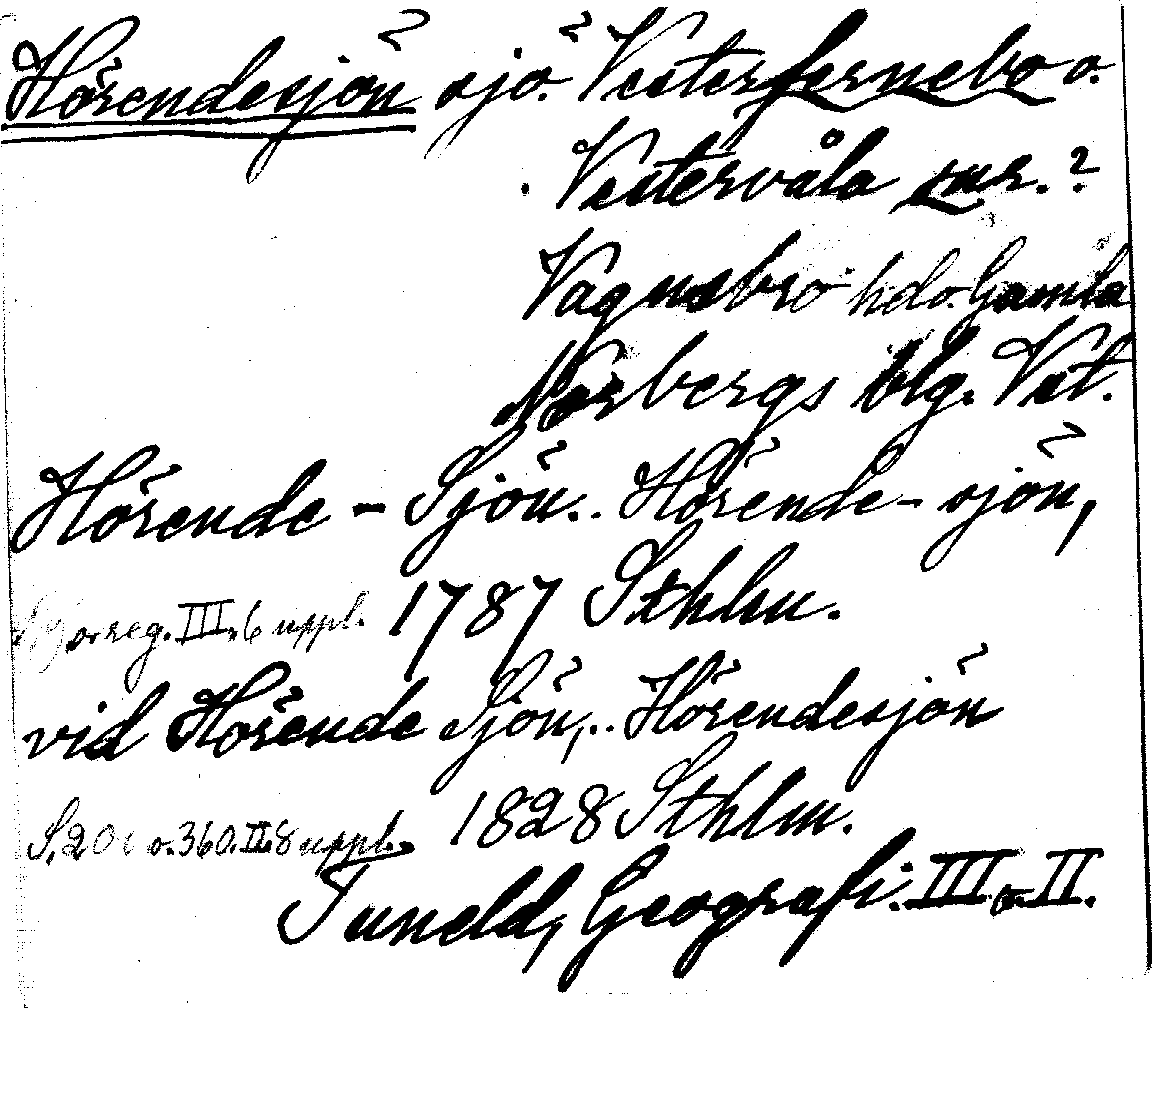 Hörendesjön sjö. Vesterfernebo o.
Vestervåla snr. ?
Vagnsbro hdo. Gamla
Norbergs blg. Vst.
Hörende - Sjön... Hörende-sjön,
o. reg. III. 6 uppl. 1787 Sthlm.
vid Hörende Sjön,.. Hörendesjön
S. o. 360. II. 8 uppl. 1828 Sthlm.
Tuneld, Geografi. III o. II.